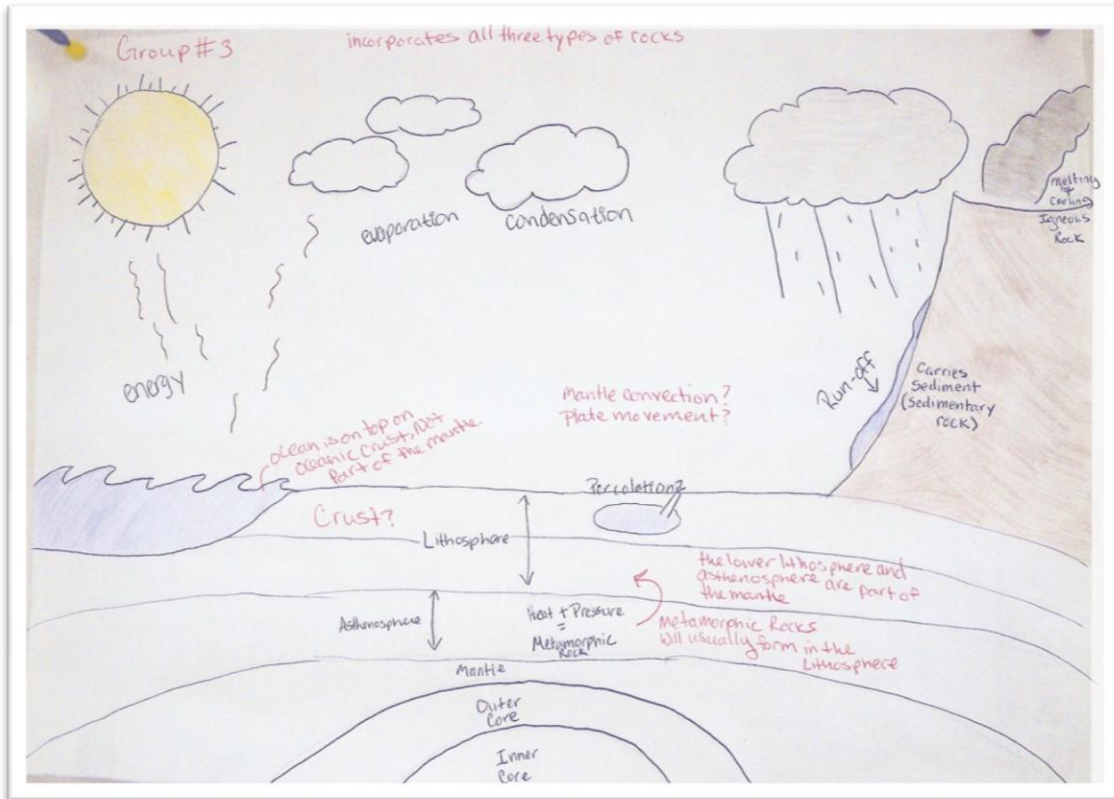 Group #3
incorporates all three types of rocks
evaporation
condensation
melting
+
Cooling
Igneous
Rock
energy
Run-off
Carries
Sediment
(Sedimentary
rock)
Mantle convection?
Plate movement?
ocean is on top on
oceanic crust, Not
Part of the mantle.
Percolation?
Crust?
Lithosphere
the lower lithosphere and
asthenosphere are part of
the mantle
Asthenosphere
Heat + Pressure
=
Metamorphic
Rock
Metamorphic Rocks
will usually form in the
Lithosphere
Mantle
Outer
Core
Inner
Core